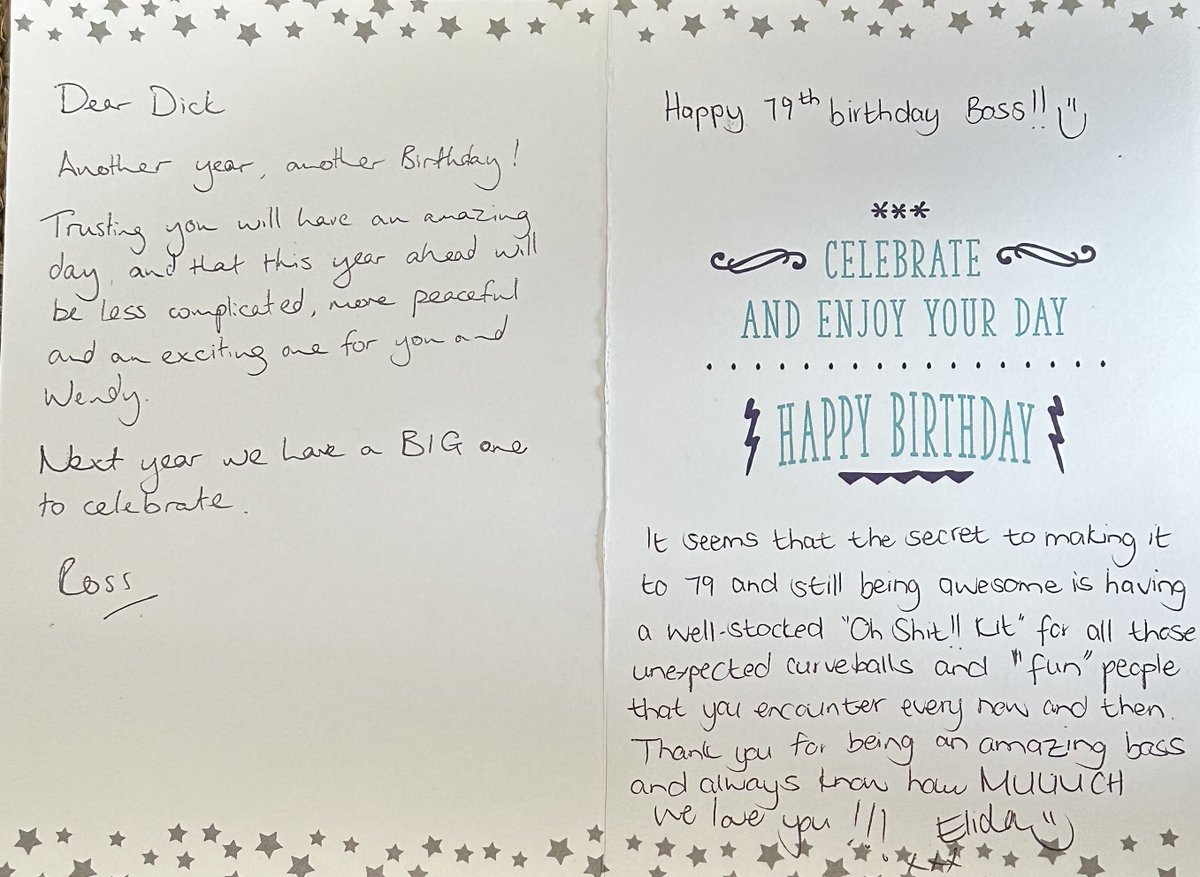 Dear Dick
Another year, another Birthday!
Trusting you will have an amazing
day, and that this year ahead will
be less complicated, more peaceful
and an exciting one for you and
Wendy.
Next year we have a BIG one
to celebrate.
Ross
Happy 79th birthday Boss!!
***
CELEBRATE
AND ENJOY YOUR DAY
HAPPY BIRTHDAY
It seems that the secret to making it
to 79 and still being awesome is having
a well-stocked "Oh Shit!! Kit" for all those
unexpected curveballs and "fun" people
that you encounter every now and then.
Thank you for being an amazing boss
and always know how MUUUCH
we love you !!! Elida
xxx